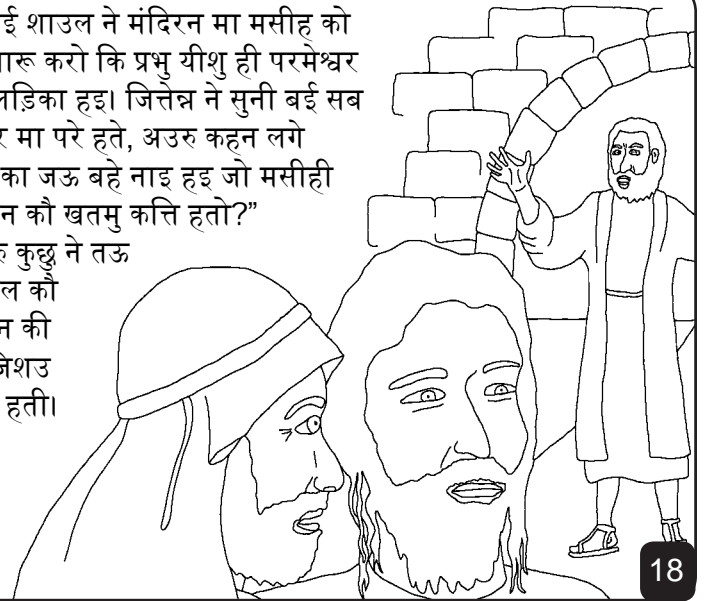 ई शाउल ने मंदिरन मा मसीह को
करो कि प्रभु यीशु ही परमेश्वर
हइ। जित्तेन्न ने सुनी बई सब
मा परे हते, अउरु कहन लगे
का जऊ बहे नाइ हइ जो मसीही
न कौ खतमु कत्ति हतो?”
कुछु ने तऊ
ल कौ
न की
हती।
18